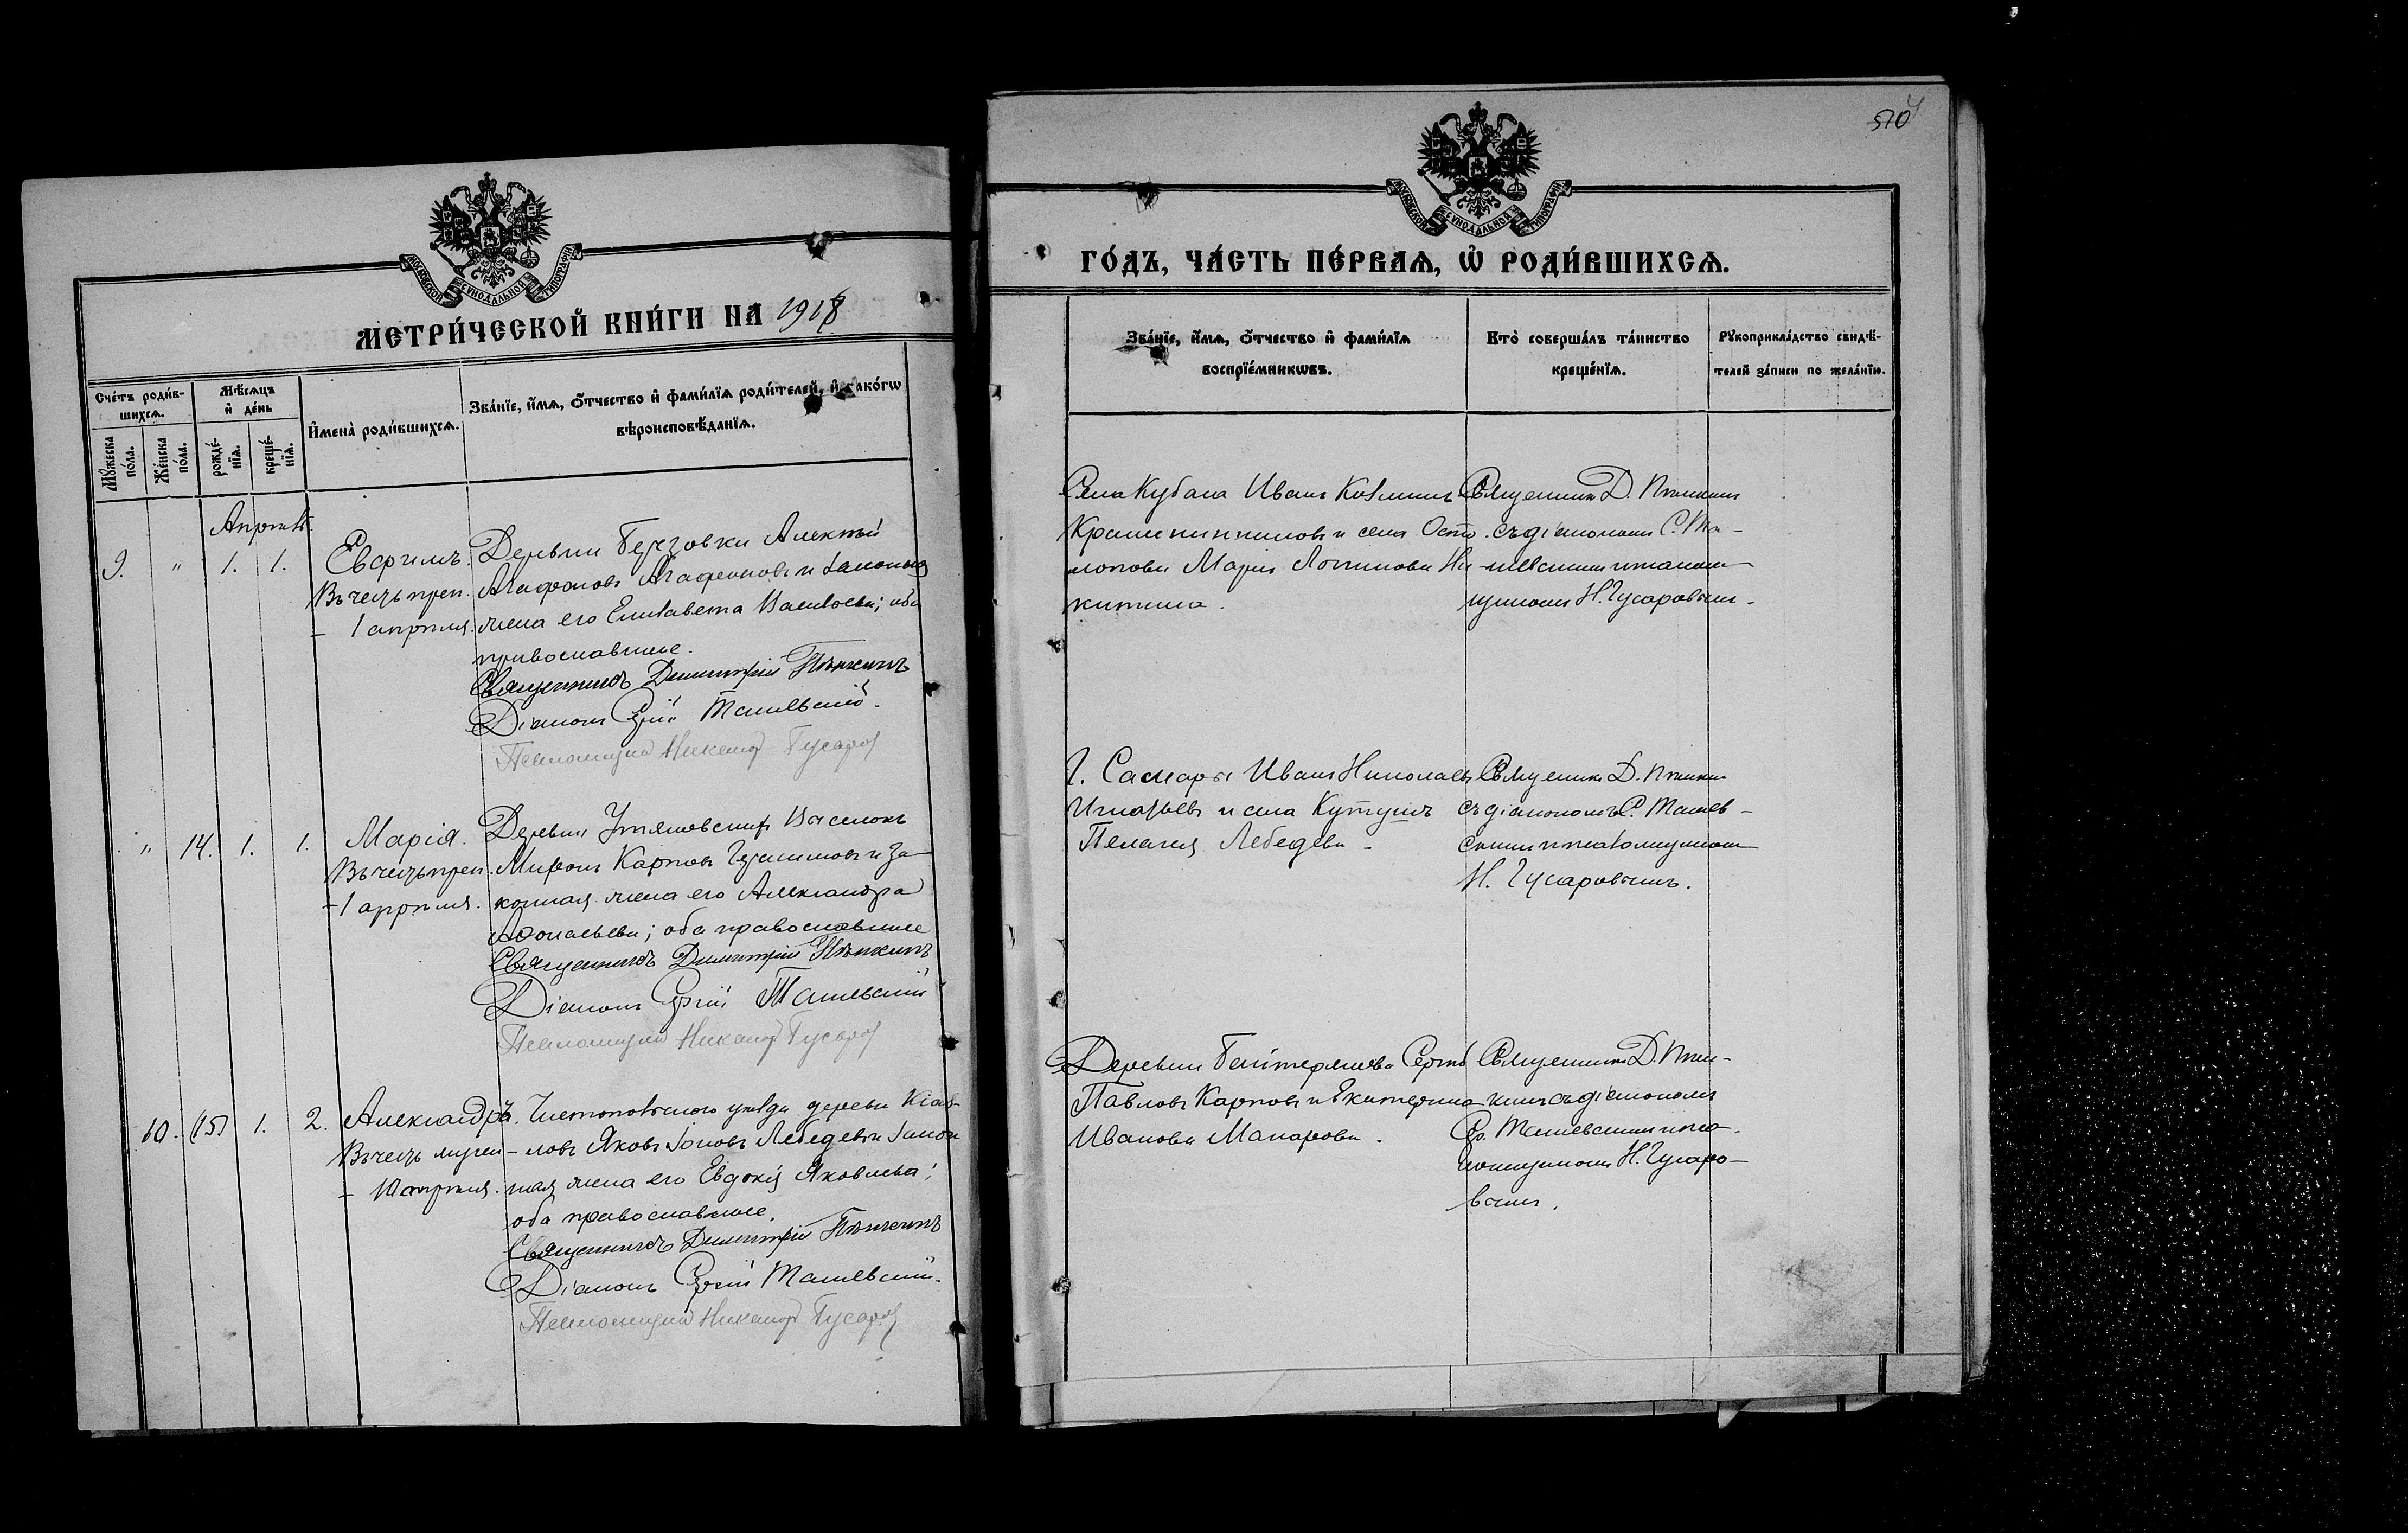 МОСКОВСКОЙ СУНОДАЛЬНОЙ ТИПОГРАФІИ
МЕТРИ́ЧЕСКОЙ КНИ́ГИ НА 1918
Сче́тъ роди́в-
шихсѧ.
Мѣ́сѧцъ
и҆ де́нь
И҆мена̀ роди́вшихсѧ.
Зва́нїе, и҆́мѧ, ѻ҆́тчество и҆ фами́лїѧ роди́телей, и҆ како́гѡ
вѣроисповѣ́данїѧ.
Мꙋ́жеска
по́ла.
Же́нска
по́ла.
рожде́-
нїѧ.
креще́-
нїѧ.
Апрѣль.
9. " 1. 1.
Евфимъ.
Въ честь преп.
- 1 апрѣля.
Деревни Березовки Алексѣй
Агафоновъ Агафоновъ и законная
жена его Елизавета Васильева; оба
православные.
Священникъ Димитрій Пѣнкинъ
Діаконъ Сергій Ташевскій.
Псаломщикъ Никаноръ Гусаров
" 14. 1. 1.
Марія.
Въ честь преп.
- 1 апрѣля.
Деревни Васелокъ
Миронъ Карповъ Герасимовъ и за-
конная жена его Александра
Афонасьева; оба православные
Священникъ Димитрій Пѣнкинъ
Діаконъ Сергій Ташевскій
Псаломщикъ Никаноръ Гусаров
10. (15) 1. 2.
Александръ.
Въ честь мучен-
- 10 апрѣля.
Чистопольскаго уѣзда деревни
Яковъ Іоновъ Лебедевъ и закон
ная жена его Евдокія Яковлева;
оба православные.
Священникъ Димитрій Пѣнкинъ
Діаконъ Сергій Ташевскій.
Псаломщикъ Никаноръ Гусаров
570
МОСКОВСКОЙ СУНОДАЛЬНОЙ ТИПОГРАФІИ
ГО́ДЪ, ЧА́СТЬ ПЕ́РВАѦ, Ѡ҆ РОДИ́ВШИХСѦ.
Зва́нїе, и҆́мѧ, ѻ҆́тчество и҆ фами́лїѧ
воспрїе́мникѡвъ.
Кто̀ соверша́лъ та́инство
креще́нїѧ.
Рꙋкоприкла́дство свидѣ́-
телей за́писи по жела́нїю.
Села Кубаса Иванъ Козминъ
Крашенинниковъ и села Осто-
лопова Марія Логинова Ни-
китина.
Священникъ Д. Пѣнкинъ
съ діакономъ С. Та-
шевскимъ и псалом
щикомъ Н. Гусаровымъ.
Г. Самары Иванъ Николаевъ
Игнатьевъ и села Кутушъ
Пелагія Лебедева.
Священникъ Д. Пѣнкинъ
съ діакономъ С. Ташев-
скимъ и псаломщикомъ
Н. Гусаровымъ.
Деревни Сергѣй
Павловъ Карповъ и Екатерина
Иванова Макарова.
Священникъ Д. Пѣн-
кинъ съ діакономъ
С. Ташевскимъ и пса-
ломщикомъ Н. Гусаро-
вымъ.